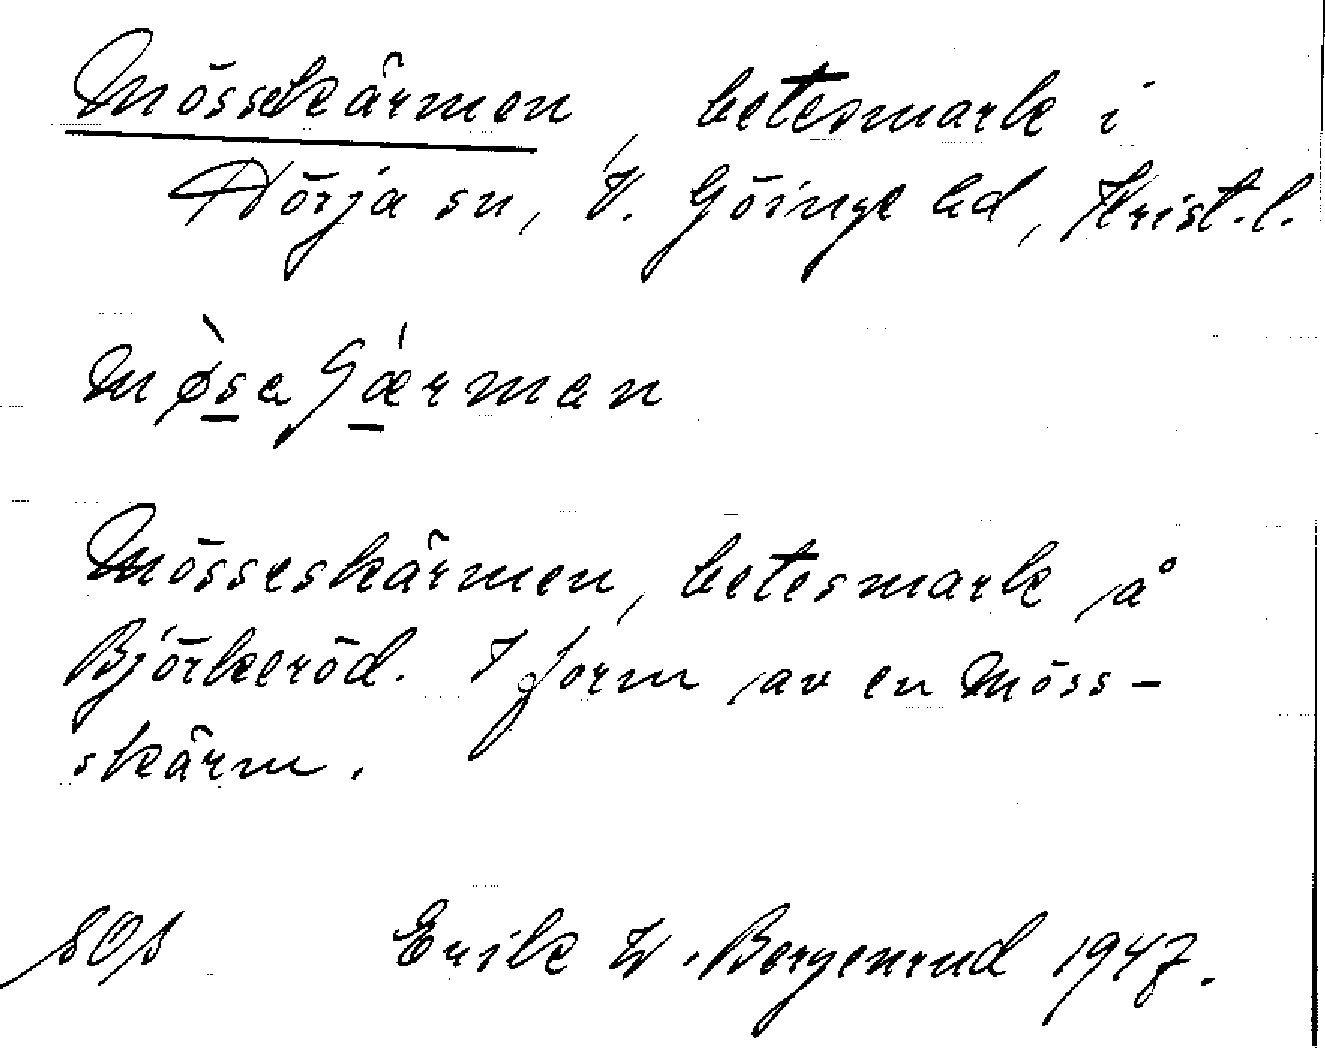 Mösseskärmen, betesmark i
Nörja sn, V. Göinge hd, Krist. l.
Mösseskärmen, betesmark å
Björkeröd. I form av en möss-
skärm.
SOS Erik W. Bergenrud 1947.